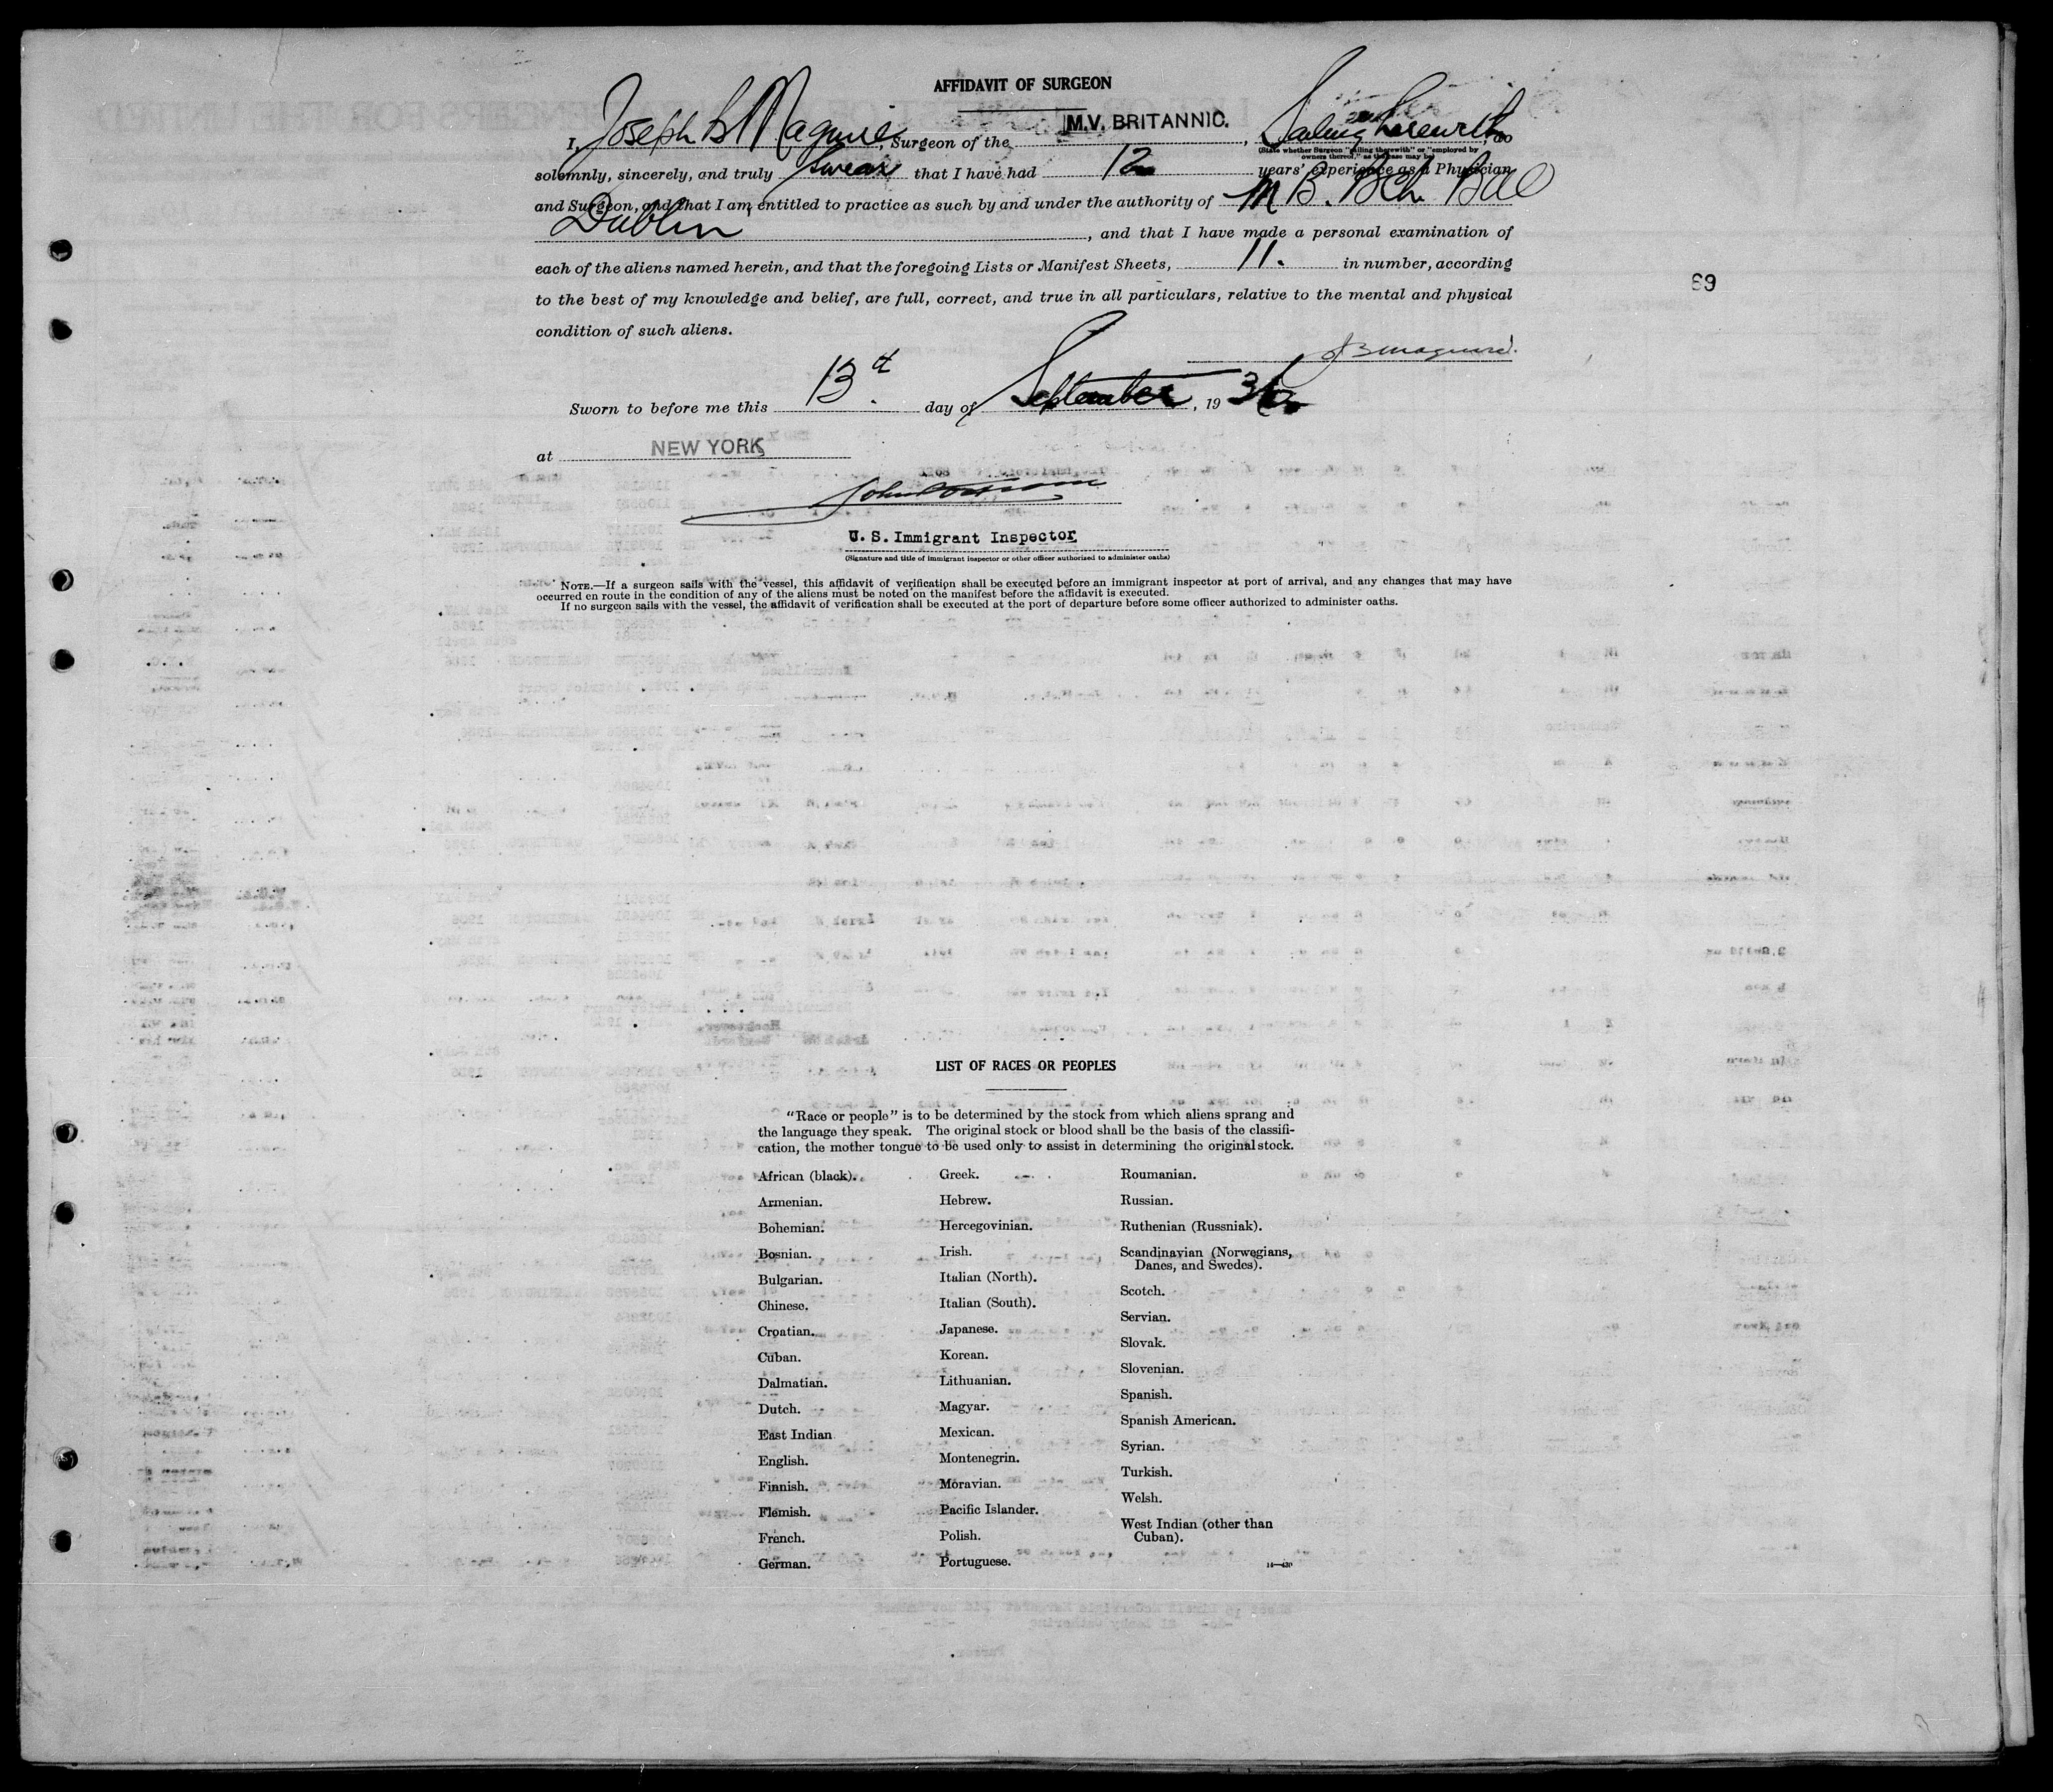 AFFIDAVIT OF SURGEON
I, Joseph B Maguire, Surgeon of the M.V. BRITANNIC., Sailing therewith, do
(State whether Surgeon "sailing therewith" or "employed by
owners thereof," as the case may be)
solemnly, sincerely, and truly swear that I have had 12 years' experience as a Physician
and Surgeon, and that I am entitled to practice as such by and under the authority of M B. BCh. BAO
Dublin, and that I have made a personal examination of
each of the aliens named herein, and that the foregoing Lists or Manifest Sheets, 11. in number, according
to the best of my knowledge and belief, are full, correct, and true in all particulars, relative to the mental and physical
condition of such aliens.
69
J B Maguire.
Sworn to before me this 13th day of September, 1936
at NEW YORK
U. S. Immigrant Inspector
(Signature and title of immigrant inspector or other officer authorized to administer oaths)
NOTE.—If a surgeon sails with the vessel, this affidavit of verification shall be executed before an immigrant inspector at port of arrival, and any changes that may have
occurred en route in the condition of any of the aliens must be noted on the manifest before the affidavit is executed.
If no surgeon sails with the vessel, the affidavit of verification shall be executed at the port of departure before some officer authorized to administer oaths.
LIST OF RACES OR PEOPLES
"Race or people" is to be determined by the stock from which aliens sprang and
the language they speak. The original stock or blood shall be the basis of the classifi-
cation, the mother tongue to be used only to assist in determining the original stock.
African (black).
Armenian.
Bohemian.
Bosnian.
Bulgarian.
Chinese.
Croatian.
Cuban.
Dalmatian.
Dutch.
East Indian
English.
Finnish.
Flemish.
French.
German.
Greek.
Hebrew.
Hercegovinian.
Irish.
Italian (North).
Italian (South).
Japanese.
Korean.
Lithuanian.
Magyar.
Mexican.
Montenegrin.
Moravian.
Pacific Islander.
Polish.
Portuguese.
Roumanian.
Russian.
Ruthenian (Russniak).
Scandinavian (Norwegians,
Danes, and Swedes).
Scotch.
Servian.
Slovak.
Slovenian.
Spanish.
Spanish American.
Syrian.
Turkish.
Welsh.
West Indian (other than
Cuban).
14—430